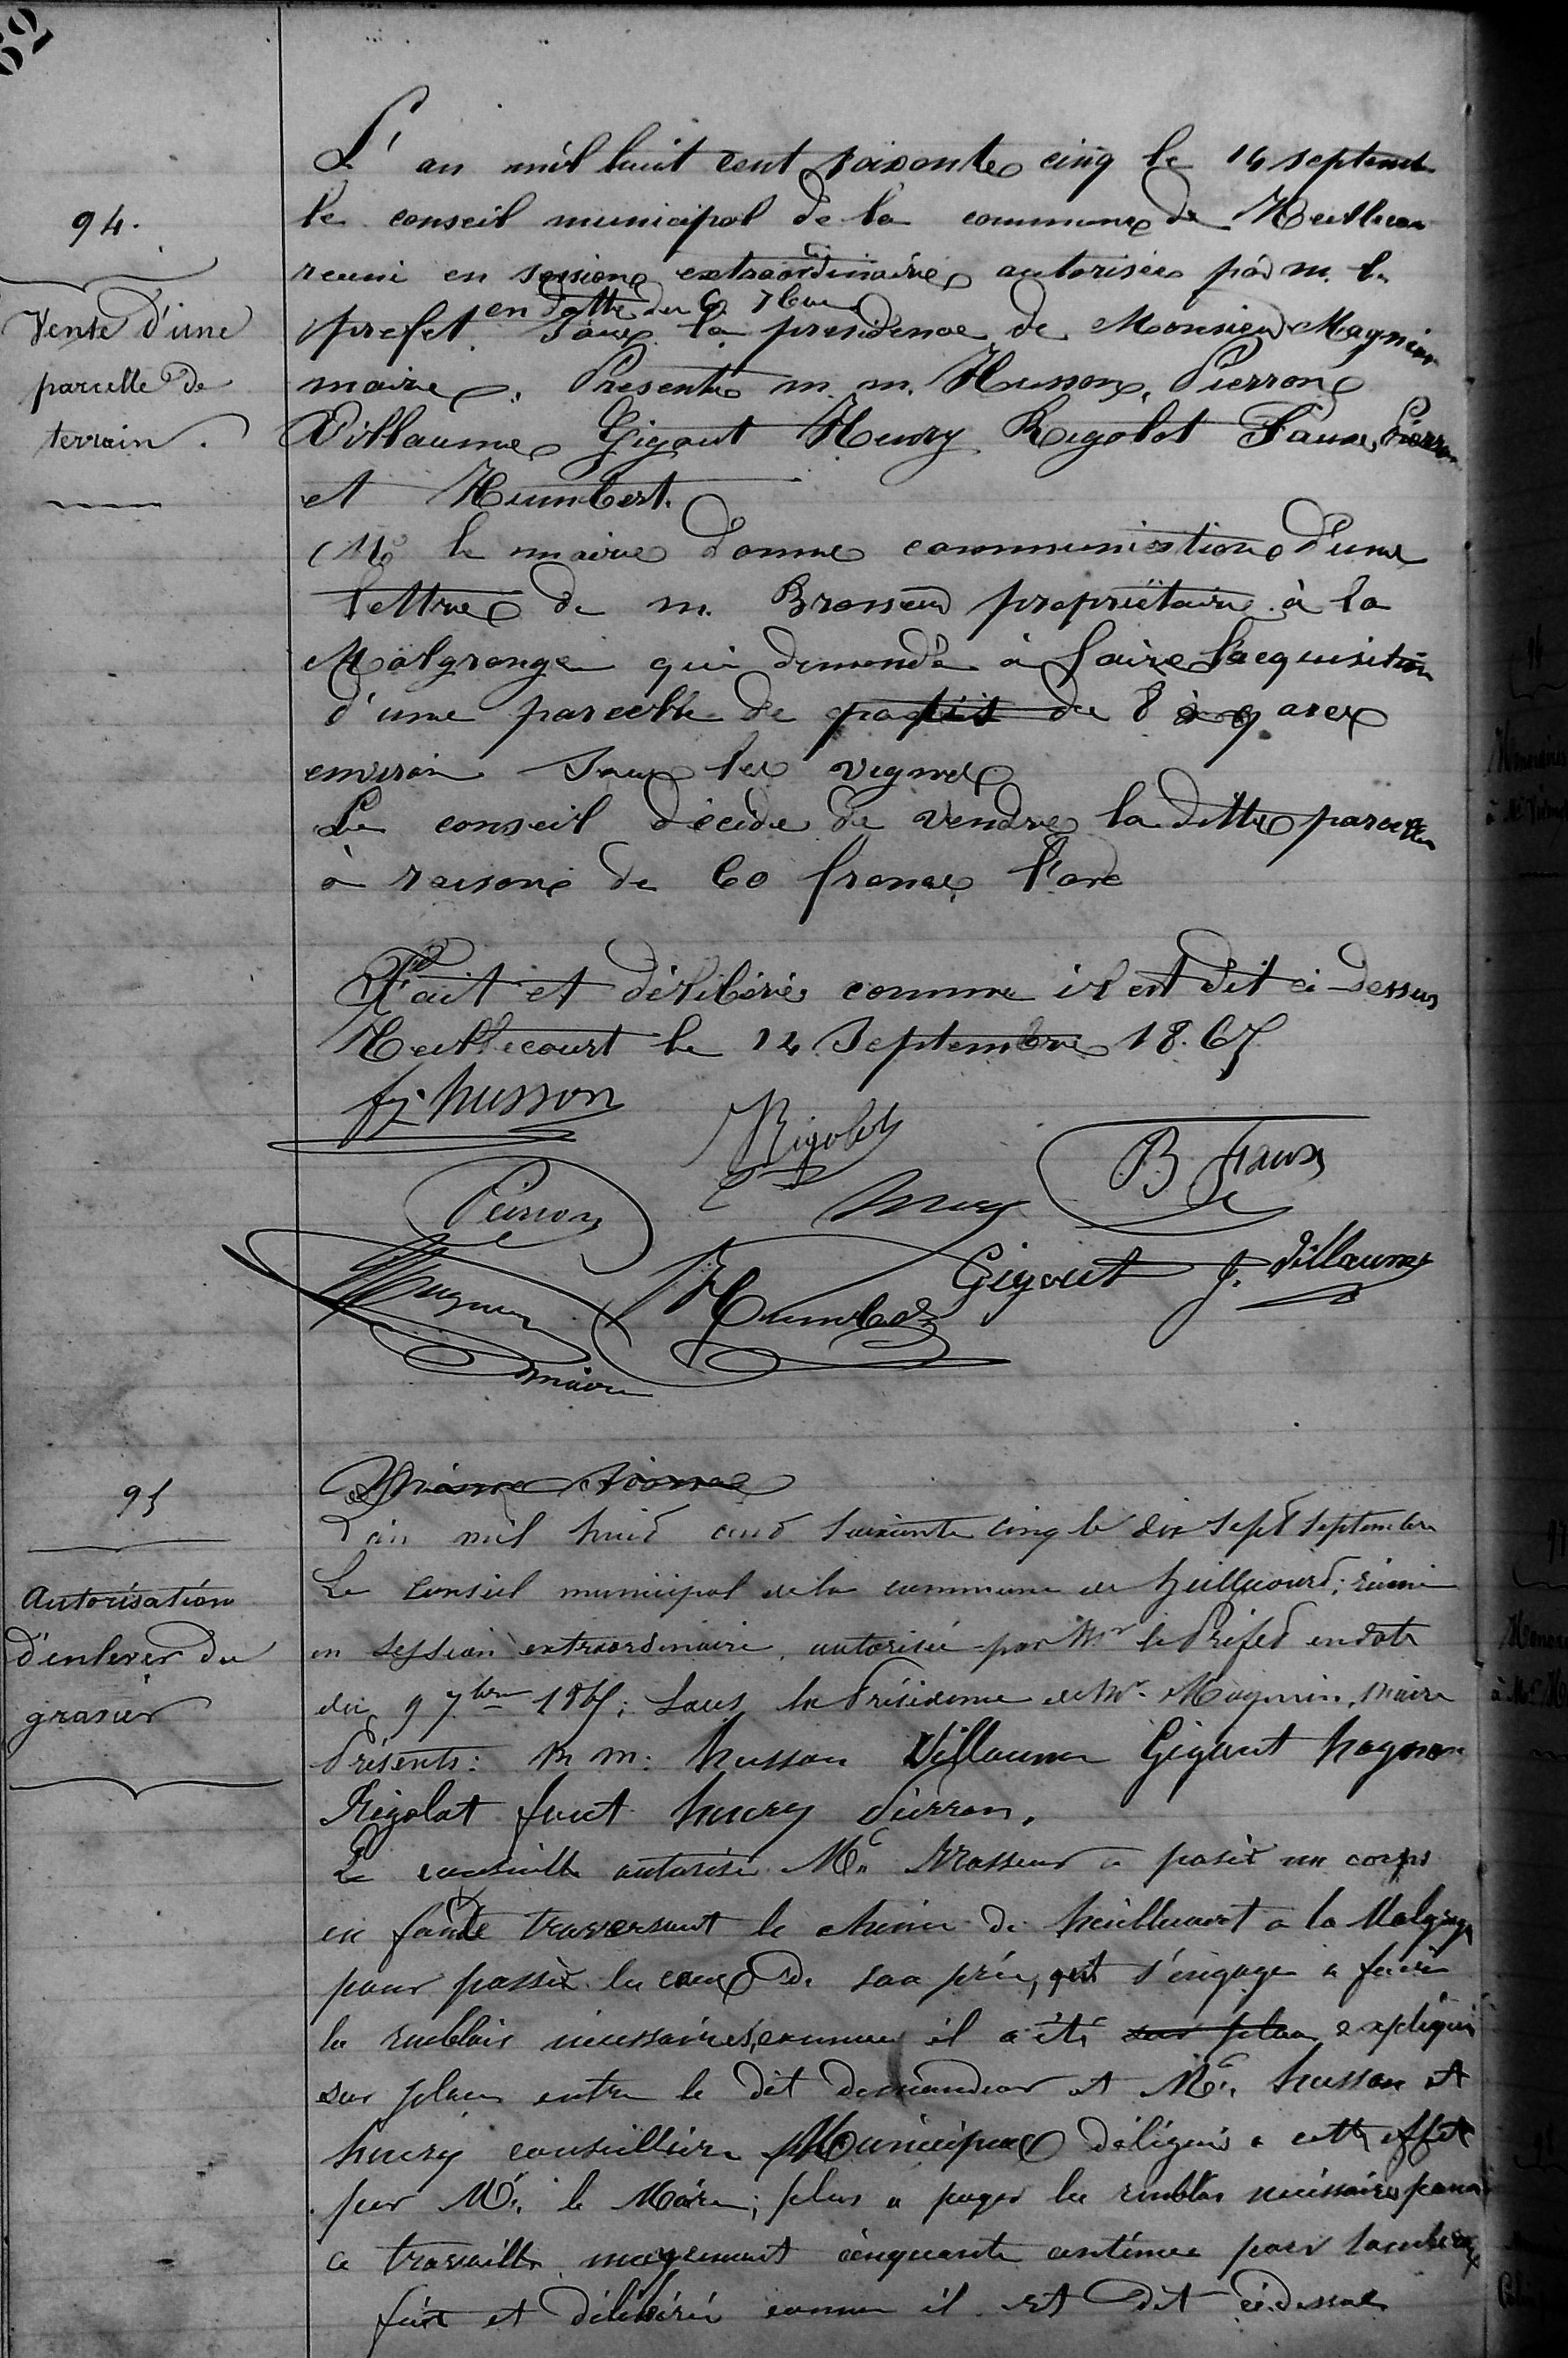 62
94.
Vente d'une
parcelle de
terrain.
L'an mil huit cent soixante cinq le 14 septemb
le conseil municipal de la commune de Heillecou
reuni en session extraordinaire autorisée par m. le
en datte du 9 7bre
prefet sous la presidence de Monsieur Magnien
maire. Presents m. m. Husson, Pierron
Villaume Gigout Henry Rigolot Faux
et Humbert.
Mr le maire donne communication d'une
lettre de m. Brasseur propriétaire à la
Malgrange qui demande à faire l'acquisition
d'une parcelle de du 8 à 9 ares
environ sous les vignes
Le conseil décide de vendre la ditte parcelle
à raison de 60 francs l'are
Fait et délibéré comme il est dit ci dessus
Heillecourt le 14 Septembre 1865
fz husson
Rigolot
B. Faux
Pierron
Henry
Magnien
maire
Humbert
Gigout
J. Villaume
95
Autorisation
d'enlever du
gravier
L'an mil huit cent soixante cinq le dix sept septembre
Le Conseil municipal de la commune de heillecourt, réuni
en session extraordinaire autorisée par Mr le Préfet en date
du 9 7bre 1865; sous la Présidence de Mr. Magnien, Maire
Présents: M m. husson Villaume Gigout
Rigolot henry Pierron.
Le conseille autorise Mr. Brasseur a poser un corps
en fonte traversant le chemin de heillecourt a la Malgrange
pour passer les eaux de son pré, et s'engage a faire
les remblais necessaires, comme il a été sur plan expliqué
sur place entre le dit demandeur et Mr. husson et
henry conseillers Municipaux délégués a cette effet
par Mr. le Maire; plus a payer les remblais nécessaires pour
ce travaille moyennant cinquante centimes par tombereaux
fait et délibéré comme il est dit ci dessus